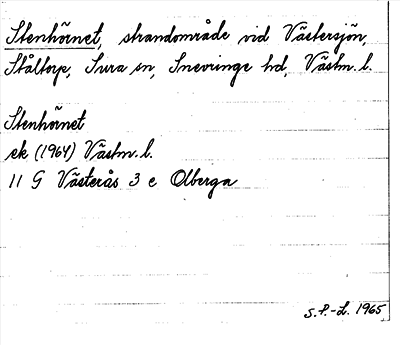 Stenhörnet, strandområde vid Västersjön,
Ståltorp, Sura sn, Snevringe hd, Västm. l.
Stenhörnet
ek (1964) Västm. l.
11 G Västerås 3 c Olberga
S.P.-L. 1965